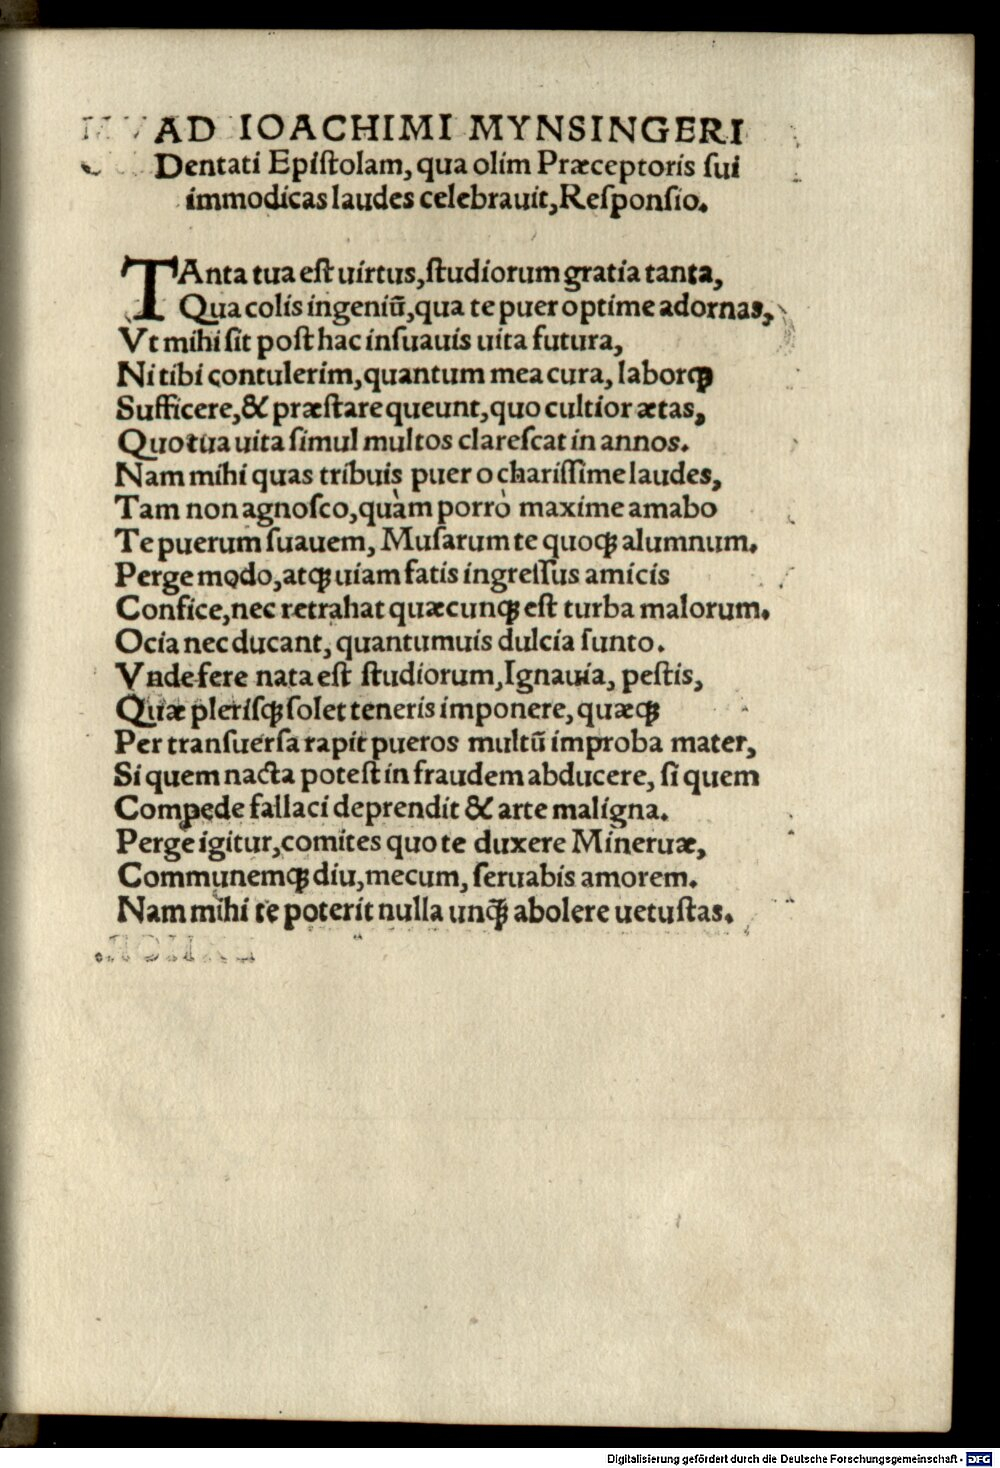 AD IOACHIMI MYNSINGERI
Dentati Epiſtolam, qua olim Præceptoris ſui
immodicas laudes celebrauit, Reſponſio.
TAnta tua eſt uirtus, ſtudiorum gratia tanta,
Qua colis ingeniũ, qua te puer optime adornas,
Vt mihi ſit poſt hac inſuauis uita futura,
Ni tibi contulerim, quantum mea cura, laborq;
Sufficere, & præſtare queunt, quo cultior ætas,
Quo tua uita ſimul multos clareſcat in annos.
Nam mihi quas tribuis puer o chariſſime laudes,
Tam non agnoſco, quàm porrò maxime amabo
Te puerum ſuauem, Muſarum te quoq; alumnum.
Perge modo, atq; uiam fatis ingreſſus amicis
Confice, nec retrahat quæcunq; eſt turba malorum.
Ocia nec ducant, quantumuis dulcia ſunto.
Vnde fere nata eſt ſtudiorum, Ignauia, peſtis,
Quæ pleriſq; ſolet teneris imponere, quæq;
Per transuerſa rapit pueros multũ improba mater,
Si quem nacta poteſt in fraudem abducere, ſi quem
Compede fallaci deprendit & arte maligna.
Perge igitur, comites quo te duxere Mineruæ,
Communemq; diu, mecum, ſeruabis amorem.
Nam mihi te poterit nulla unq̃ abolere uetuſtas.
Digitalisierung gefördert durch die Deutsche Forschungsgemeinschaft - DFG